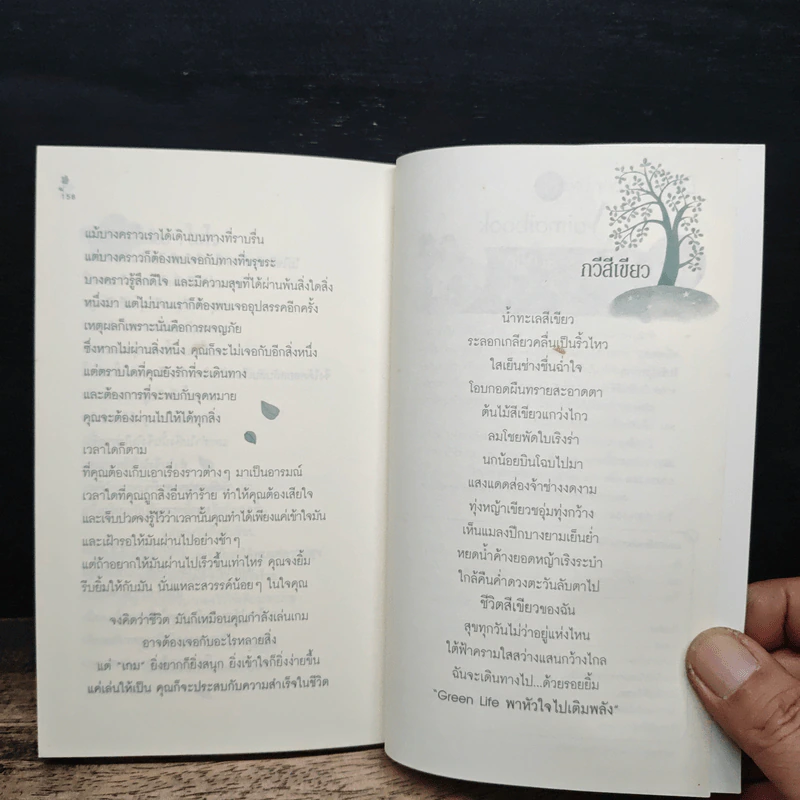 158
แม้บางคราวเราได้เดินบนทางที่ราบรื่น
แต่บางคราวก็ต้องพบเจอกับทางที่ขรุขระ
บางคราวรู้สึกดีใจ และมีความสุขที่ได้ผ่านพ้นสิ่งใดสิ่ง
หนึ่งมา แต่ไม่นานเราก็ต้องพบเจออุปสรรคอีกครั้ง
เหตุผลก็เพราะนั่นคือการผจญภัย
ซึ่งหากไม่ผ่านสิ่งหนึ่ง คุณก็จะไม่เจอกับอีกสิ่งหนึ่ง
แต่ตราบใดที่คุณยังรักที่จะเดินทาง
และต้องการที่จะพบกับจุดหมาย
คุณจะต้องผ่านไปให้ได้ทุกสิ่ง
เวลาใดก็ตาม
ที่คุณต้องเก็บเอาเรื่องราวต่างๆ มาเป็นอารมณ์
เวลาใดที่คุณถูกสิ่งอื่นทำร้าย ทำให้คุณต้องเสียใจ
และเจ็บปวดจงรู้ไว้ว่าเวลานั้นคุณทำได้เพียงแค่เข้าใจมัน
และเฝ้ารอให้มันผ่านไปอย่างช้าๆ
แต่ถ้าอยากให้มันผ่านไปเร็วขึ้นเท่าไหร่ คุณจงยิ้ม
รีบยิ้มให้กับมัน นั่นแหละสวรรค์น้อยๆ ในใจคุณ
จงคิดว่าชีวิต มันก็เหมือนคุณกำลังเล่นเกม
อาจต้องเจอกับอะไรหลายสิ่ง
แต่ "เกม" ยิ่งยากก็ยิ่งสนุก ยิ่งเข้าใจก็ยิ่งง่ายขึ้น
แค่เล่นให้เป็น คุณก็จะประสบกับความสำเร็จในชีวิต
กวีสีเขียว
น้ำทะเลสีเขียว
ระลอกเกลียวคลื่นเป็นริ้วไหว
ใสเย็นช่างชื่นฉ่ำใจ
โอบกอดผืนทรายสะอาดตา
ต้นไม้สีเขียวแกว่งไกว
ลมโชยพัดใบเริงร่า
นกน้อยบินโฉบไปมา
แสงแดดส่องจ้าช่างงดงาม
ทุ่งหญ้าเขียวชอุ่มทุ่งกว้าง
เห็นแมลงปีกบางยามเย็นย่ำ
หยดน้ำค้างยอดหญ้าเริงระบำ
ใกล้คืนค่ำดวงตะวันลับตาไป
ชีวิตสีเขียวของฉัน
สุขทุกวันไม่ว่าอยู่แห่งไหน
ใต้ฟ้าครามใสสว่างแสนกว้างไกล
ฉันจะเดินทางไป...ด้วยรอยยิ้ม
"Green Life พาหัวใจไปเติมพลัง"